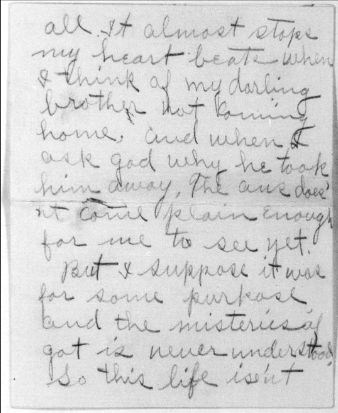 all. It almost stops
my heart beats when
I think of my darling
brother not coming
home, and when I
ask god why he took
him away, The ans does'
nt come plain enough
for me to see yet.
But I suppose it was
for some purpose,
and the misteries of
got is never understood.
So this life isen't